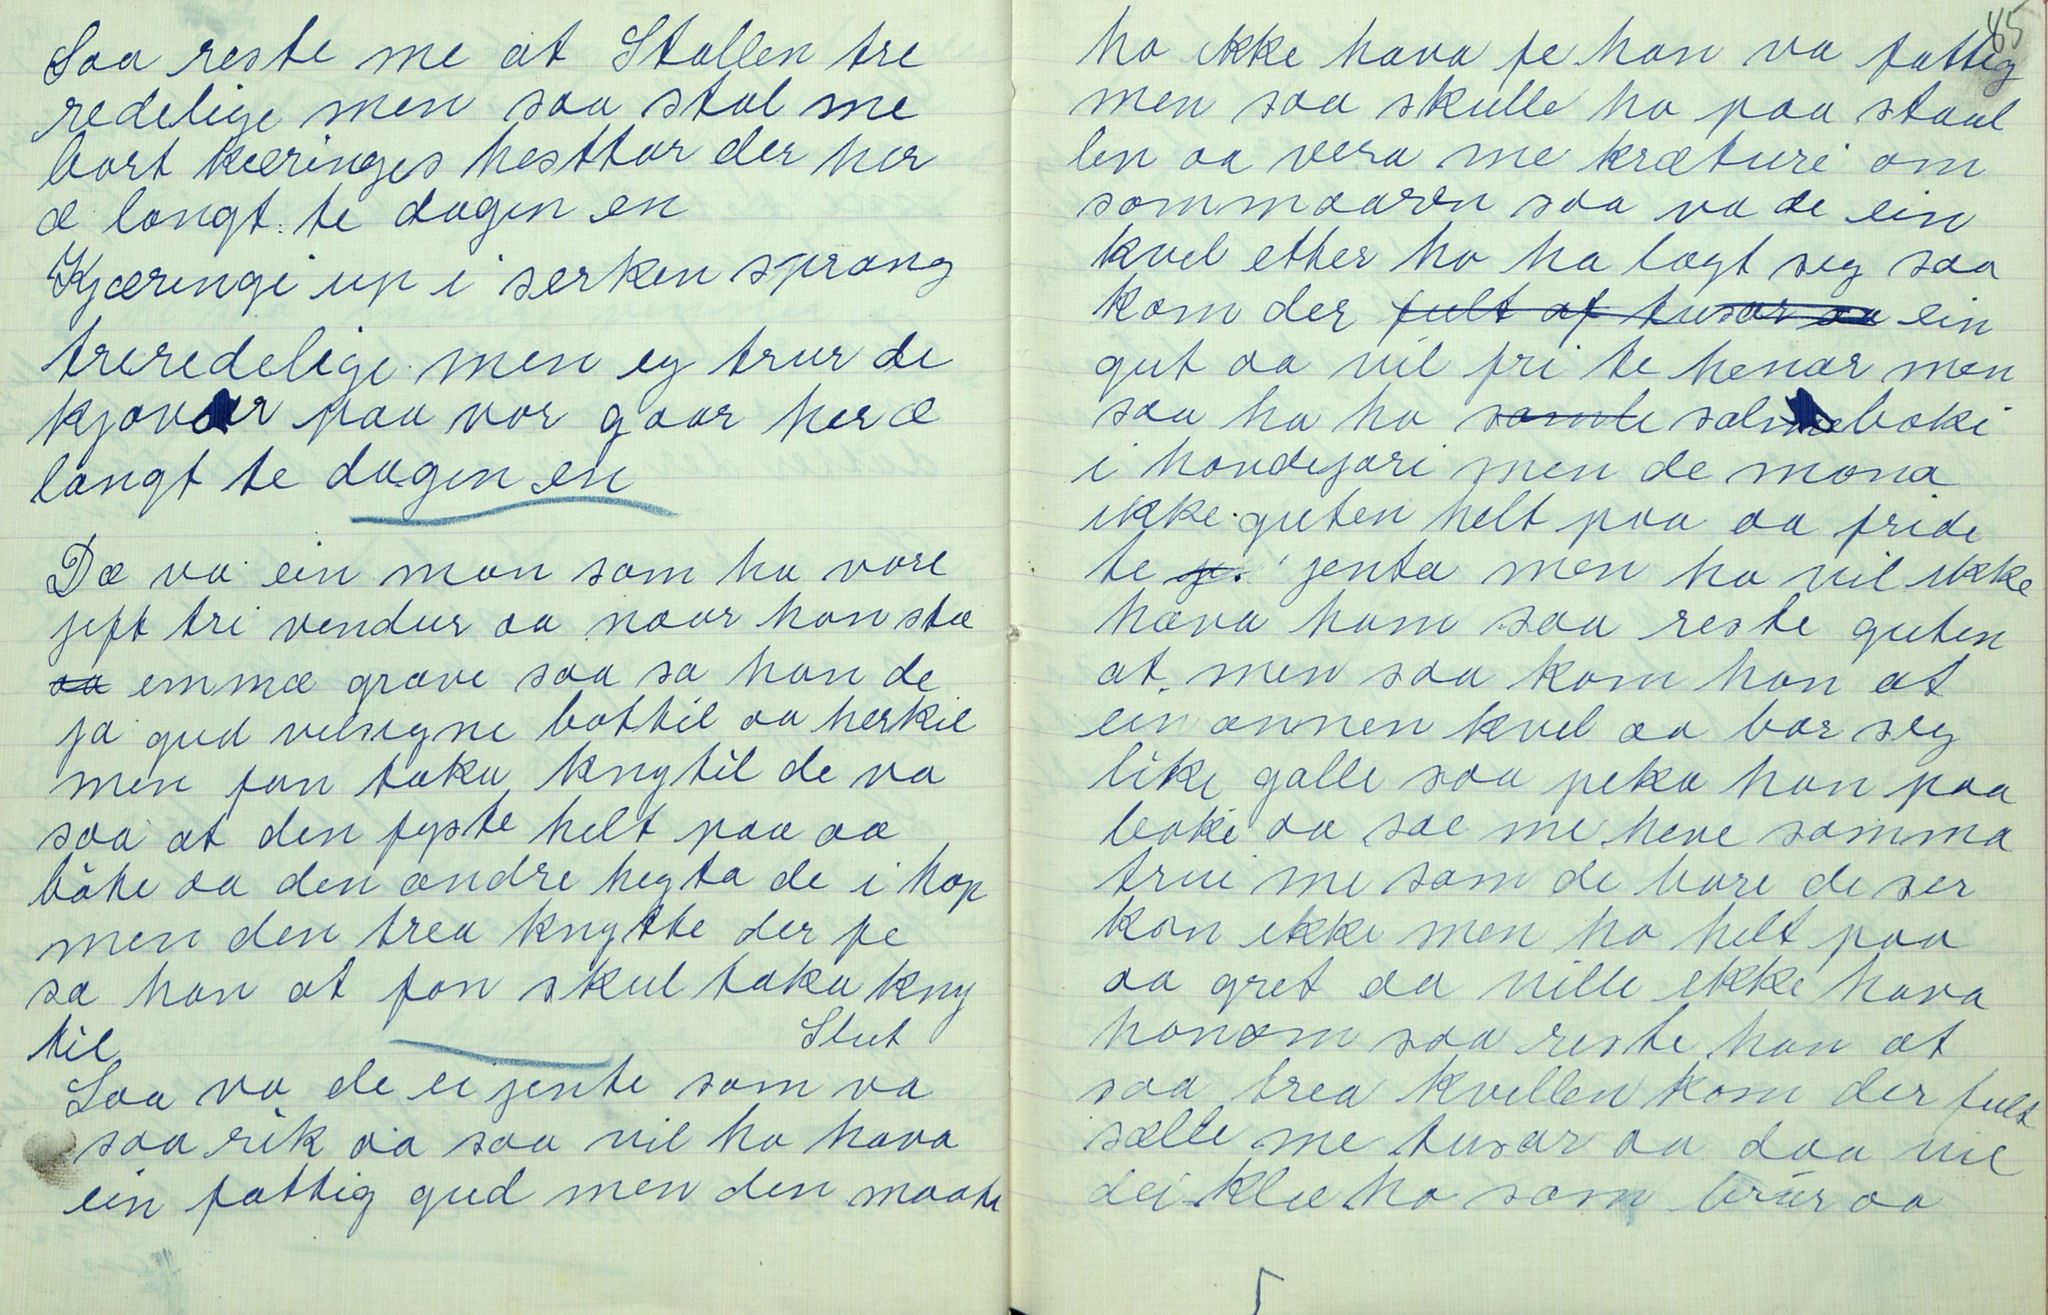 Saa reste me at Stallen tre
redelige men saa stal me
bort kæringes hesttar der her
æ langt te dagen en
Kjæringi up i serken sprang
treredelige men eg trur de
kjovar paa vor gaar her æ
langt te dagen en
Dæ va ein man som ha vore
jift tri vendur aa naar han sto
aa emmæ grave saa sa han de
ja gud velsigne bottil aa herkil
men fan taka knytil de va
saa at den fyste helt paa aa
bôte aa den andre hegta de i hop
men den trea knytte der fe
sa han at fan skul taka kny
til
Slut
Saa va de ei jente som va
saa rik aa saa vil ho hava
ein fattig gud men den maate
85
ho ikke hava fe han va fattig
men saa skulle ho paa staul
len aa vera me kræturi om
sommaaren saa va de ein
kvel etter ho ha lagt seg saa
kom der fult af tusar aa ein
gut aa vil fri te henar men
saa ha ho samle salmeboki
i hovdejæri men de mona
ikke guten helt paa aa fride
te j. jenta men ho vil ikke
hava ham saa reste guten
at. men saa kom han at
ein annen kvel aa bar seg
like galle saa peka han paa
boki aa sae me heve samma
trui me som de bare de ser
kan ikke men ho helt paa
aa gret aa ville ikke hava
honom saa reste han at
saa trea kvellen kom der fult
sælle me tusar aa daa vil
dei klæ ho som brur aa